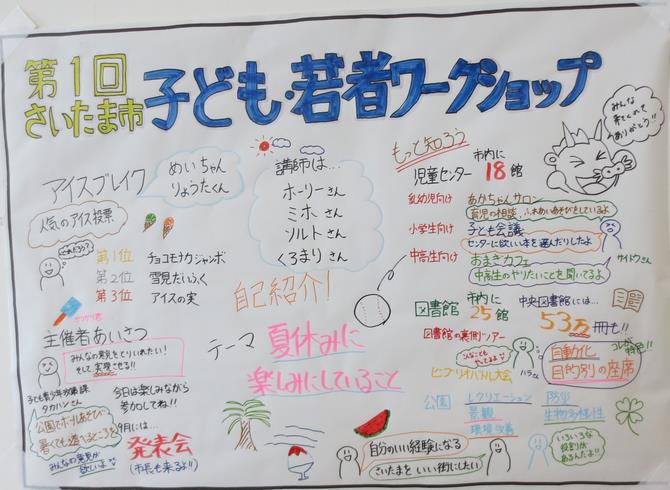 第1回
さいたま市
子ども・若者ワークショップ
みんな
来てくれて
ありがとう!!
アイスブレイク
めいちゃん
りょうたくん
人気のアイス投票
どれだろう?
第1位 チョコモナカジャンボ
第2位 雪見だいふく
第3位 アイスの実
ガリガリ君
講師は…
ホーリーさん
ミホさん
ソルトさん
くるまりさん
自己紹介!
もっと知ろう
児童センター 市内に18館
乳幼児向け あかちゃんサロン
育児の相談、ふれあいあそびをしているよ
小学生向け 子ども会議
センターに欲しい本を選んだりしたよ
中高生向け おまきカフェ
中高生のやりたいことを聞いてるよ
サイトウさん
図書館 市内に25館
中央図書館には…
53万冊も!!
図書館の裏側ツアー
こんなことも
やってるよ
ビブリオバトル大会
ハラさん
自動化
目的別の座席
コレが特長!!
公園
レクリエーション 防災
景観 生物多様性
環境改善
いろいろな
役割が
あるんだよ!!
主催者あいさつ
みんなの意見をとりいれたい!
そして実現させる!!
子ども青少年政策課
タカハシさん
今日は楽しみながら
参加してね!!
公園でボールあそび
暑くても遊べるところを
みんなの意見が
欲しいよ
9月には…
発表会
(市長も来るよ!!)
テーマ
夏休みに
楽しみにしていること
自分のいい経験になる
さいたまをいい街にしたい